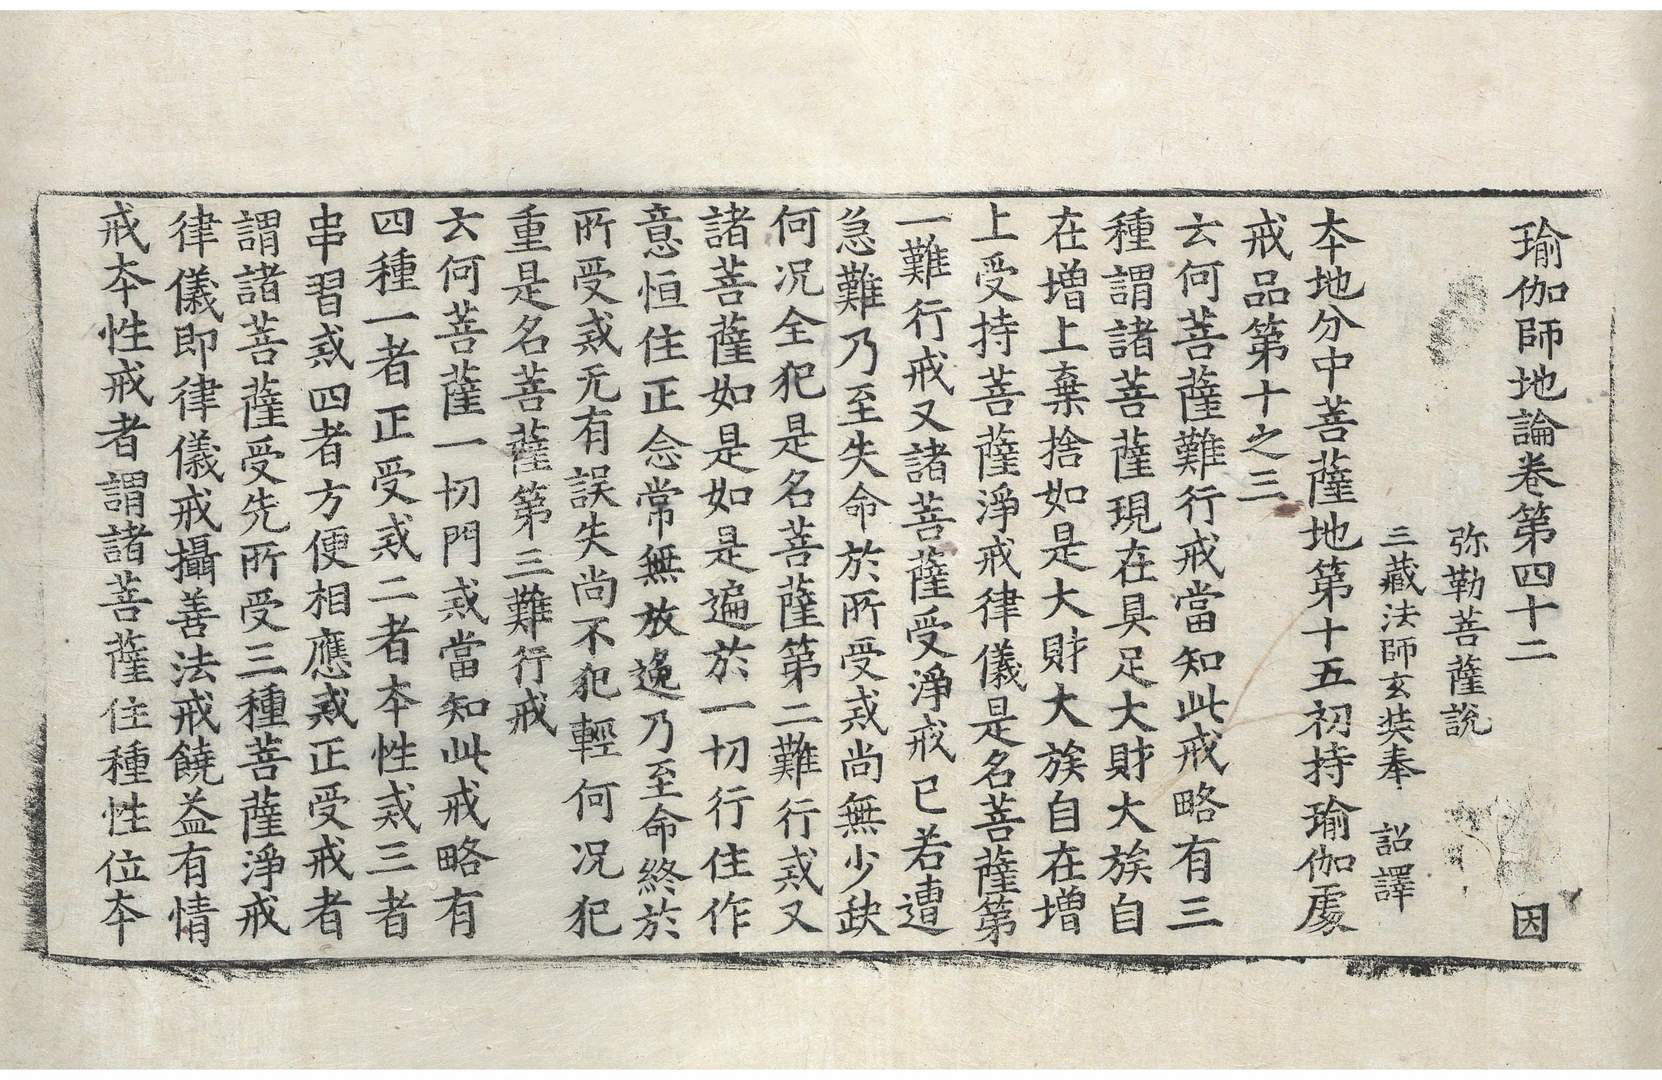 瑜伽師地論卷第四十二　因
弥勒菩薩說
三藏法師玄奘奉　詔譯
夲地分中菩薩地第十五初持瑜伽處
戒品第十之三
云何菩薩難行戒當知此戒略有三
種謂諸菩薩現在具足大財大族自
在增上棄捨如是大財大族自在增
上受持菩薩淨戒律儀是名菩薩第
一難行戒又諸菩薩受淨戒已若遭
急難乃至失命於所受戒尚無少缺
何況全犯是名菩薩第二難行戒又
諸菩薩如是如是遍於一切行住作
意恒住正念常無放逸乃至命終於
所受戒无有誤失尚不犯輕何況犯
重是名菩薩第三難行戒
云何菩薩一切門戒當知此戒略有
四種一者正受戒二者夲性戒三者
串習戒四者方便相應戒正受戒者
謂諸菩薩受先所受三種菩薩淨戒
律儀即律儀戒攝善法戒饒益有情
戒夲性戒者謂諸菩薩住種性位夲